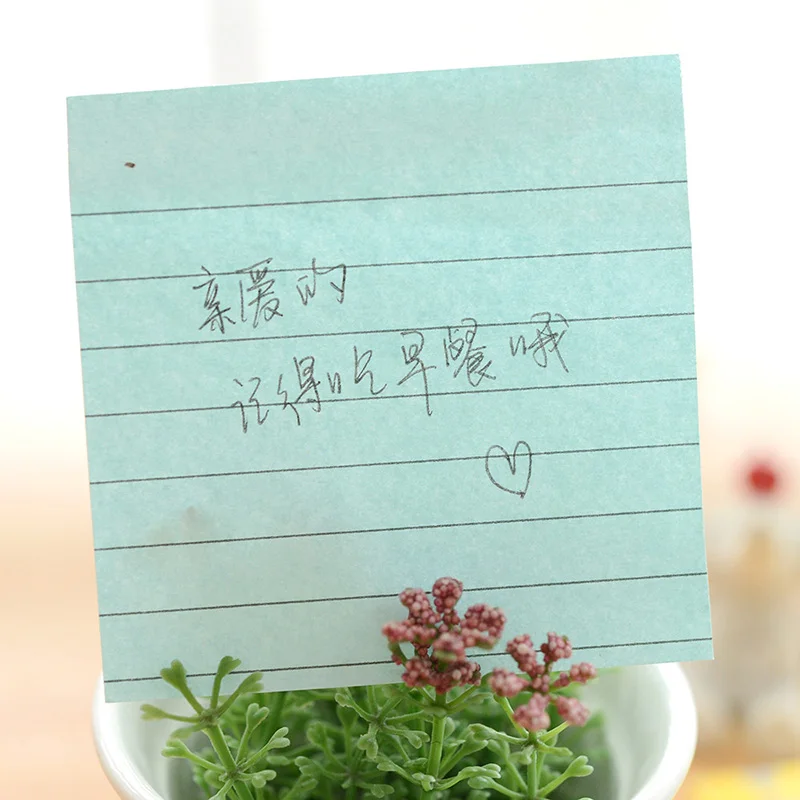 亲爱的
记得吃早餐哦